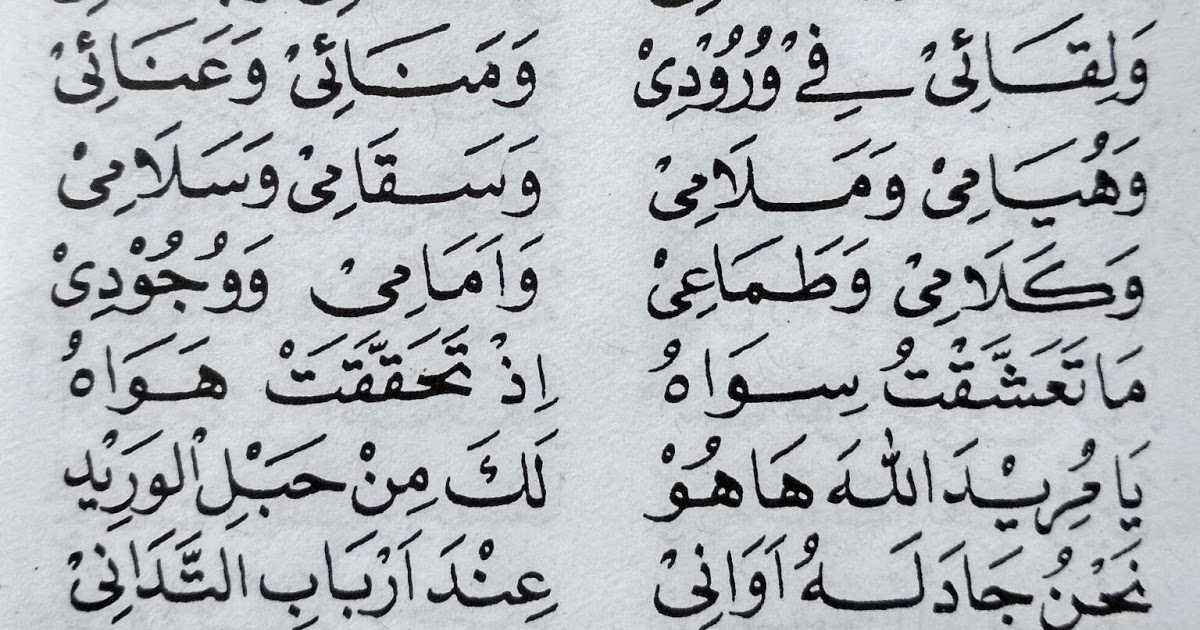 وَلِقَائِىْ فِىْ وُرُوْدِىْ وَمَنَائِىْ وَعَنَائِىْ
وَهُيَامِىْ وَمَلَامِىْ وَسَقَامِىْ وَسَلَامِىْ
وَكَلَامِىْ وَطَمَاعِىْ وَاَمَامِىْ وَوُجُوْدِىْ
مَا تَعَشَّقْتُ سِوَاهُ اِذْ تَحَقَّقَتْ هَوَاهُ
يَا مُرِيْدَ اللّٰهَ هَا هُوْ لَكَ مِنْ حَبْلِ الْوَرِيْدِ
نَحْنُ جَادَلَهُ اَوَانِىْ عِنْدَ اَرْبَابِ التَّدَانِىْ